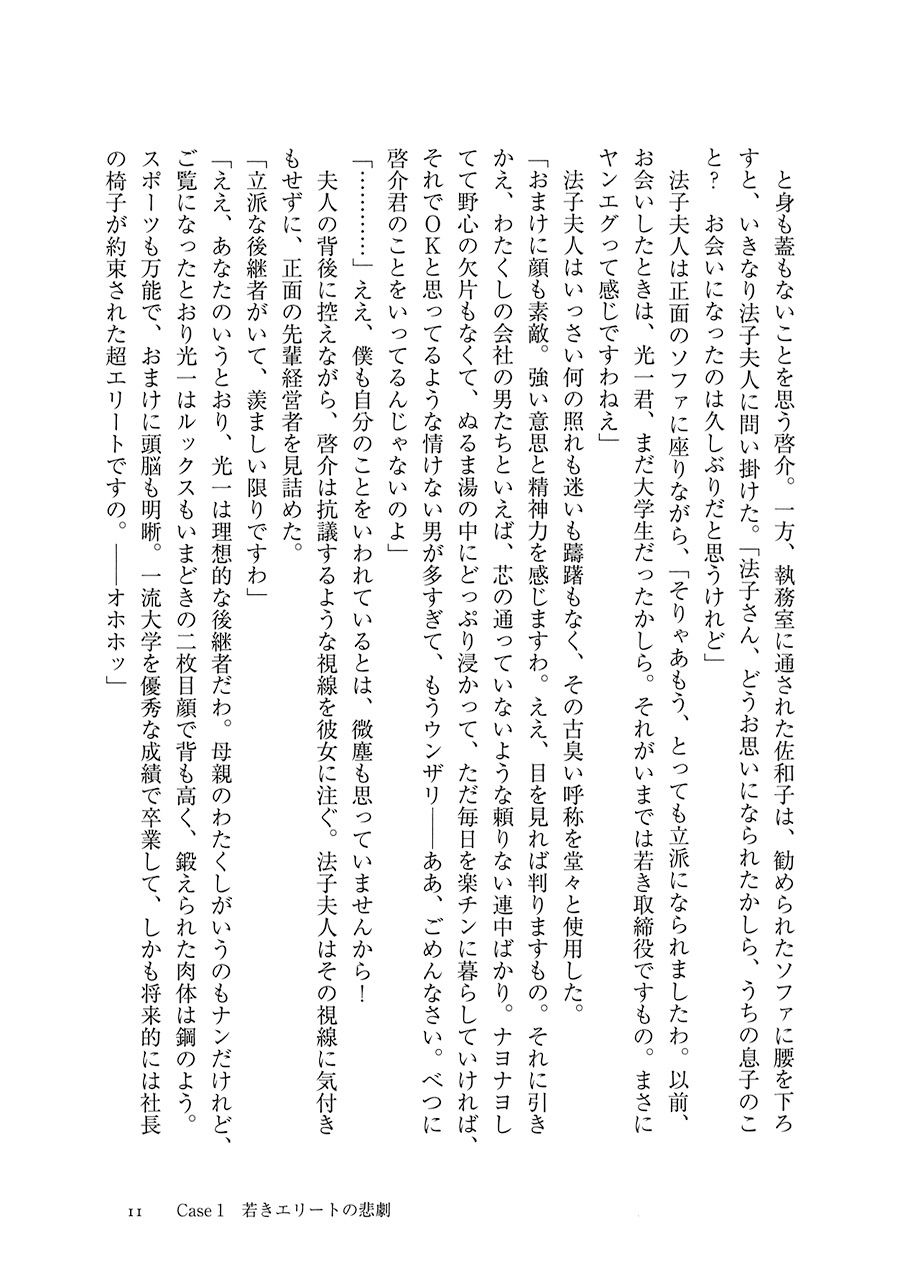 と身も蓋もないことを思う啓介。一方、執務室に通された佐和子は、勧められたソファに腰を下ろ
すと、いきなり法子夫人に問い掛けた。「法子さん、どうお思いになられたかしら、うちの息子のこ
と？　お会いになったのは久しぶりだと思うけれど」
　法子夫人は正面のソファに座りながら、「そりゃあもう、とっても立派になられましたわ。以前、
お会いしたときは、光一君、まだ大学生だったかしら。それがいまでは若き取締役ですもの。まさに
ヤンエグって感じですわねえ」
　法子夫人はいっさい何の照れも迷いも躊躇もなく、その古臭い呼称を堂々と使用した。
「おまけに顔も素敵。強い意思と精神力を感じますわ。ええ、目を見れば判りますもの。それに引き
かえ、わたくしの会社の男たちといえば、芯の通っていないような頼りない連中ばかり。ナヨナヨし
てて野心の欠片もなくて、ぬるま湯の中にどっぷり浸かって、ただ毎日を楽チンに暮らしていければ、
それでＯＫと思ってるような情けない男が多すぎて、もうウンザリ――ああ、ごめんなさい。べつに
啓介君のことをいってるんじゃないのよ」
「…………」ええ、僕も自分のことをいわれているとは、微塵も思っていませんから！
　夫人の背後に控えながら、啓介は抗議するような視線を彼女に注ぐ。法子夫人はその視線に気付き
もせずに、正面の先輩経営者を見詰めた。
「立派な後継者がいて、羨ましい限りですわ」
「ええ、あなたのいうとおり、光一は理想的な後継者だわ。母親のわたくしがいうのもナンだけれど、
ご覧になったとおり光一はルックスもいまどきの二枚目顔で背も高く、鍛えられた肉体は鋼のよう。
スポーツも万能で、おまけに頭脳も明晰。一流大学を優秀な成績で卒業して、しかも将来的には社長
の椅子が約束された超エリートですの。――オホホッ」
11　Case 1　若きエリートの悲劇